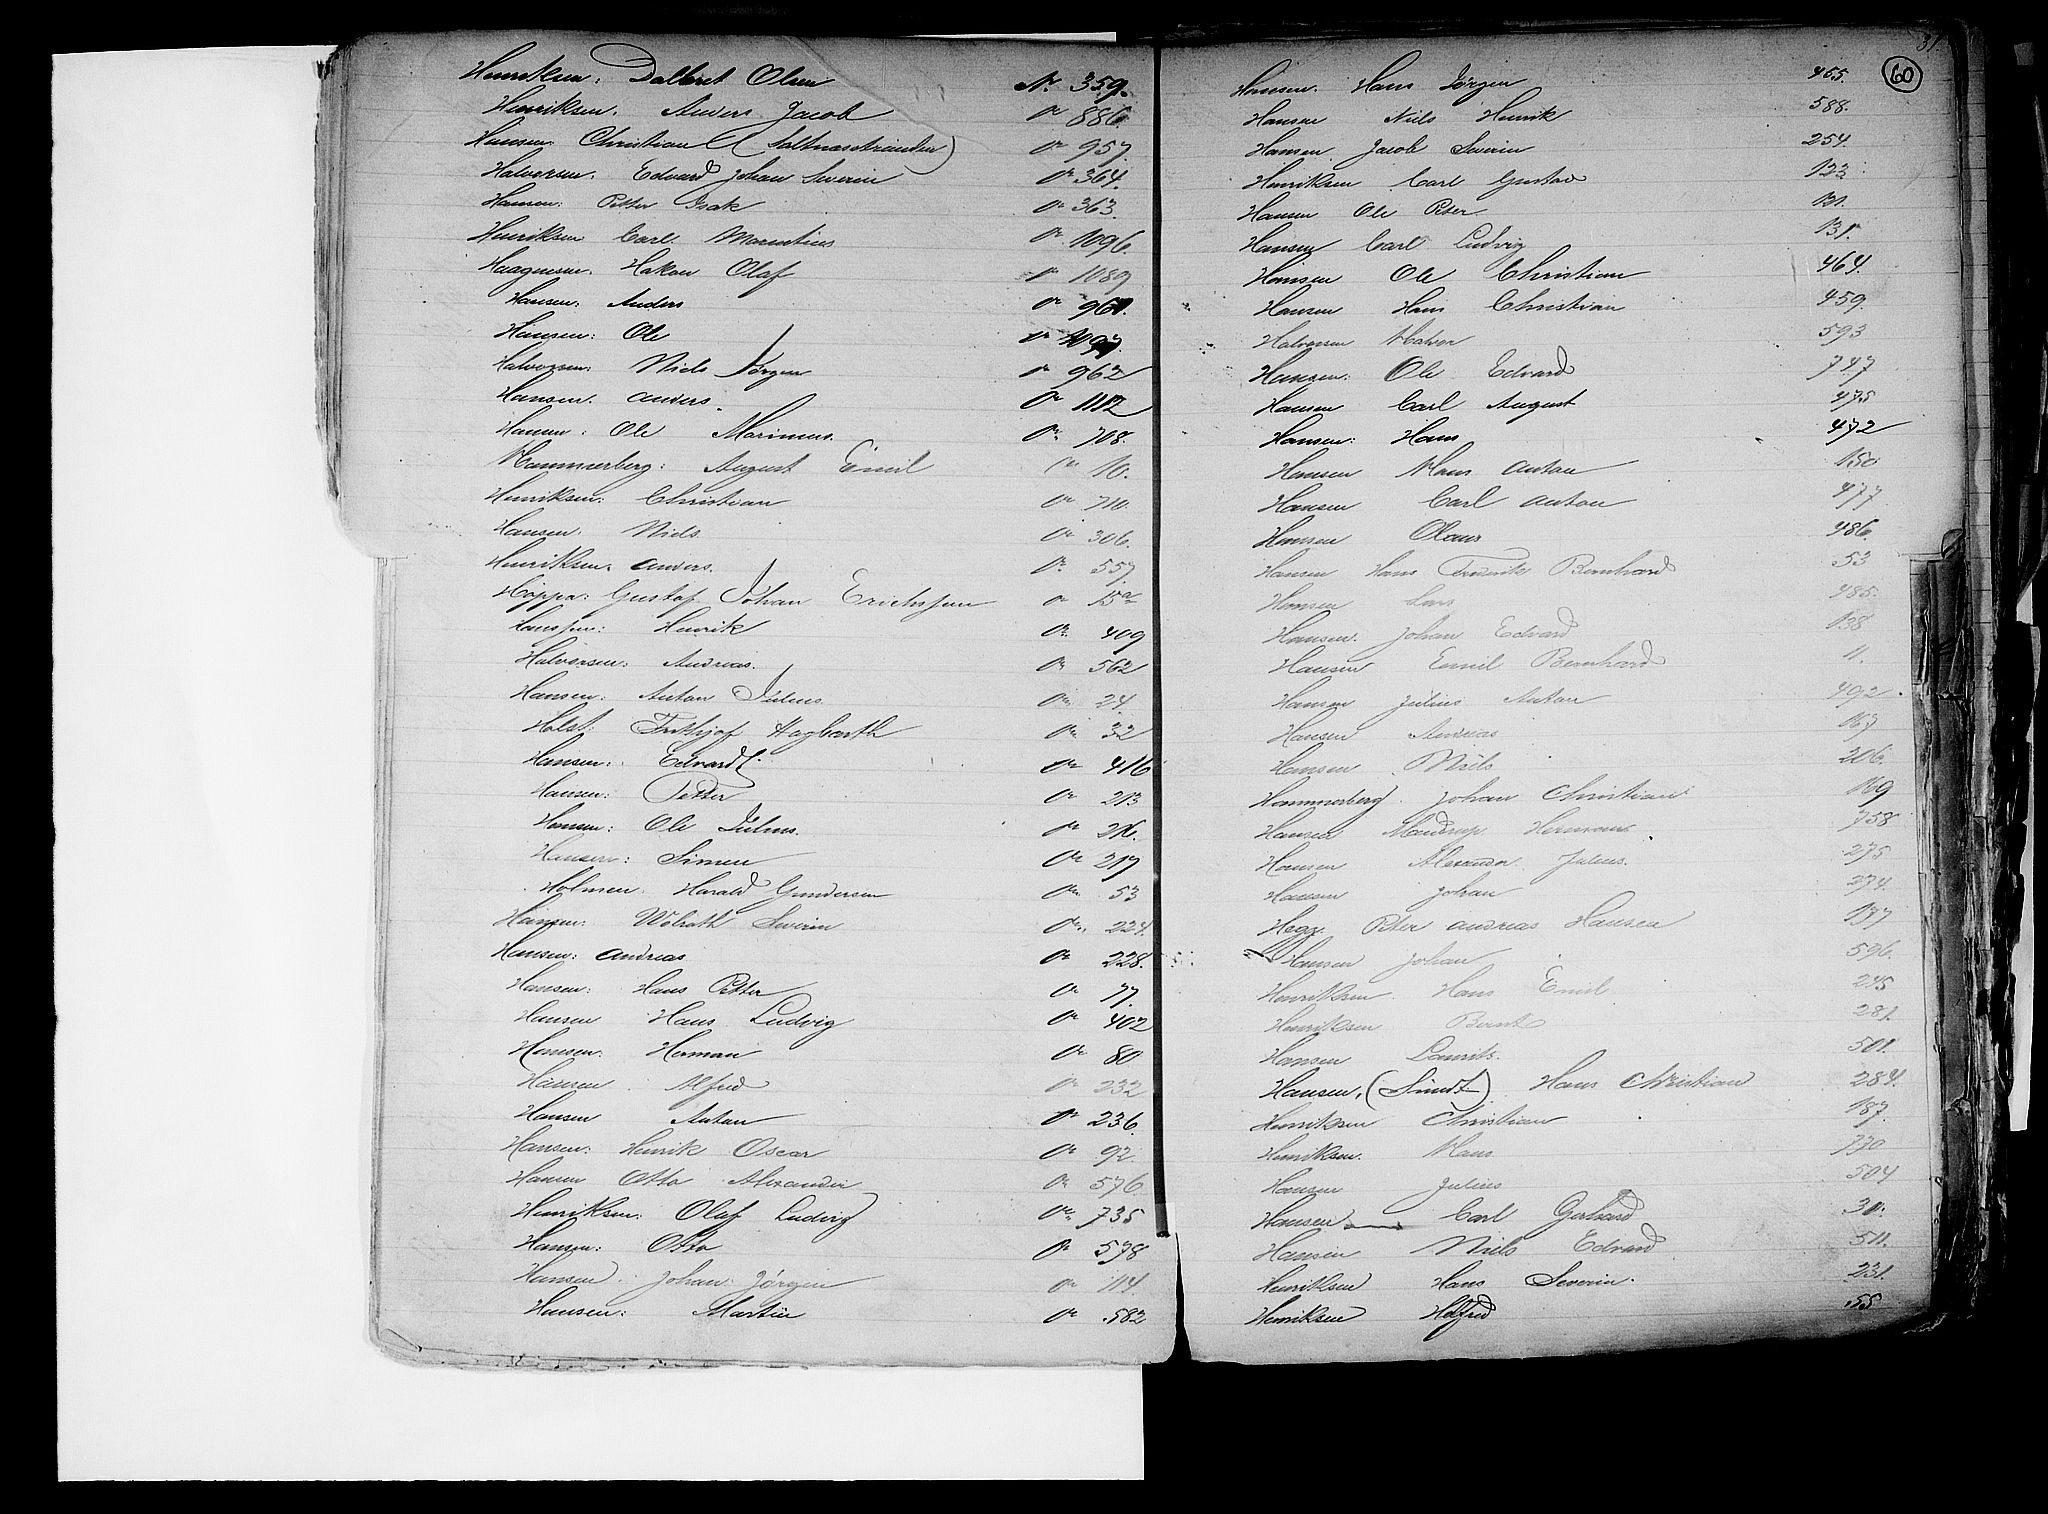 Henriksen: Olsen № 359.
Henriksen. Anders Jacob " 886.
Hansen. Christian (Saltnesstranden) " 957.
Halvorsen. Edvard Johan Severin " 364.
Hansen: Petter Isak " 363.
Henriksen Carl Marentius " 1096.
Haagensen. Hakon Olaf " 1089
Hansen: Anders " 961.
Hansen: Ole "
Halvorsen: Niels Jørgen " 962
Hansen. Anders. " 1112
Hansen: Ole Marinius. " 708.
Hammerberg: August Emil " 10.
Henriksen: Christian " 710.
Hansen. Niels. " 306.
Henriksen. Anders. " 557.
Høppa: Gustaf Johan Erichsen " 15a
Hanssen: Henrik " 409
Halvorsen: Andreas. " 562
Hansen: Anton Julius. " 24.
Holst: Frithjof Hagbarth " 32
Hansen: Edvard " 416
Hansen: Petter " 213
Hansen: Ole Julius. " 216.
Hansen: Simen " 217
Holmen. Harald Gundersen " 53
Hansen: Wolrath Severin " 224.
Hansen: Andreas " 228.
Hansen: Hans Petter " 77.
Hansen Hans Ludvig " 402
Hansen: Herman " 80
Hansen Alfred " 232
Hansen Anton " 236.
Hansen: Henrik Oscar " 92.
Hansen Otto Alexander " 576.
Henriksen: Olaf Ludvig " 735
Hansen: Otto " 578
Hansen. Johan Jørgen " 114.
Hansen: Martin " 582
31
60
Hansen. Hans Jørgen 455.
Hansen Niels Henrik 588.
Hansen Jacob Severin 254.
Henriksen Carl Gustav 123
Hansen Ole Peter 131.
Hansen Carl Ludvig 131.
Hansen Ole Christian 464.
Hansen Hans Christian 459.
Halvorsen Halvor 593
Hansen: Ole Edvard 747
Hansen Carl August 475
Hansen: Hans 472
Hansen Hans Anton 150
Hansen Carl Anton 477
Hansen Olaus 486.
Hansen Hans Fredrik Bernhard 53
Hansen Lars 485.
Hansen. Johan Edvard 138
Hansen Emil Bernhard 11.
Hansen Julius Anton 492.
Hansen Andreas 167
Hansen Niels 206.
Hammerberg. Johan Christian 169
Hansen Mandrup Hermans. 758
Hansen Alexander Julius. 275
Hansen Johan 274.
Hegg. Peter Andreas Hansen 177
Hansen Johan 596.
Henriksen. Hans Emil 245
Henriksen Bernt 281.
Hansen Laurits. 501.
Hansen, (Smidt) Hans Christian 284.
Henriksen Christian 187.
Henriksen. Hans 770
Hansen Julius 504
Hansen Carl Gerhard 30.
Hansen Niels Edvard 511.
Henriksen Hans Severin. 231.
Henriksen Halfred 55